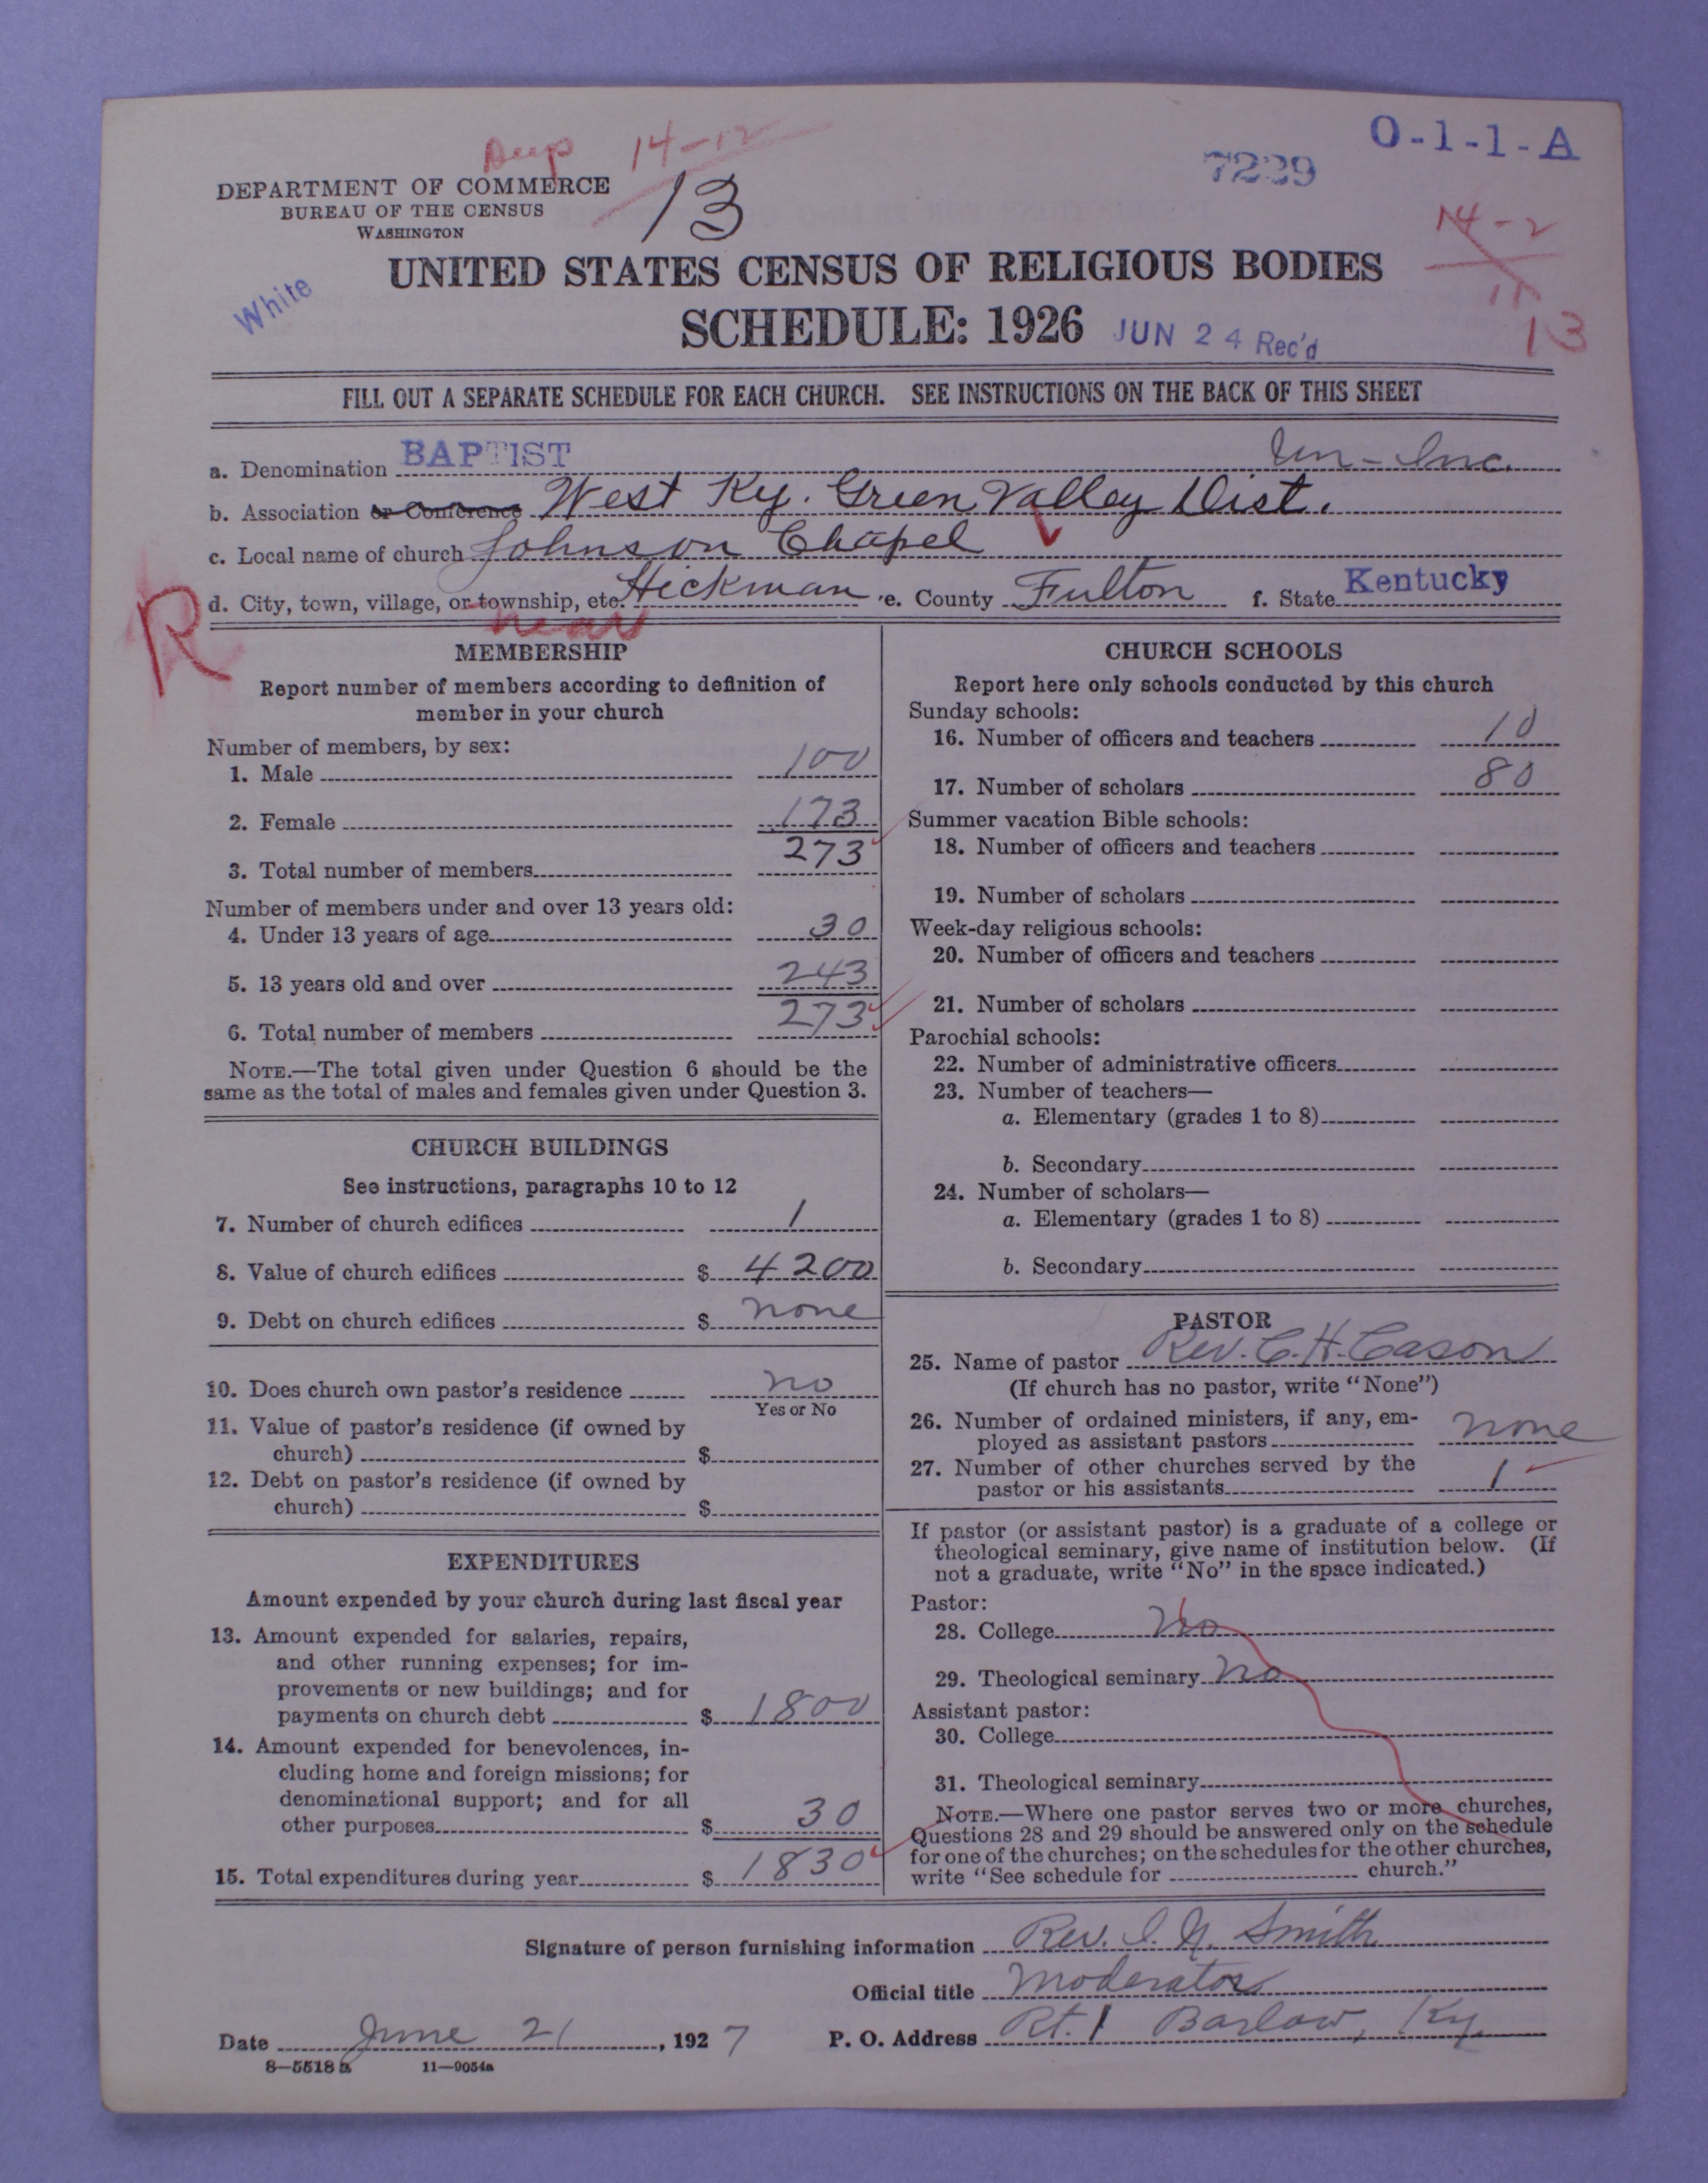 Dup 14-12
O-1-1-A
7229
DEPARTMENT OF COMMERCE
BUREAU OF THE CENSUS
WASHINGTON
13
14-2
11
13
White
UNITED STATES CENSUS OF RELIGIOUS BODIES
SCHEDULE: 1926 JUN 24 Rec'd
FILL OUT A SEPARATE SCHEDULE FOR EACH CHURCH. SEE INSTRUCTIONS ON THE BACK OF THIS SHEET
a. Denomination BAPTIST Un-Inc.
b. Association or Conference West Ky. Green Valley Dist.
c. Local name of church Johnson Chapel
d. City, town, village, or township, etc. Hickman e. County Fulton f. State Kentucky
R
near
MEMBERSHIP
Report number of members according to definition of
member in your church
Number of members, by sex:
1. Male 100
2. Female 173
3. Total number of members 273
Number of members under and over 13 years old:
4. Under 13 years of age 30
5. 13 years old and over 243
6. Total number of members 273
NOTE.—The total given under Question 6 should be the
same as the total of males and females given under Question 3.
CHURCH BUILDINGS
See instructions, paragraphs 10 to 12
7. Number of church edifices 1
8. Value of church edifices $ 4200
9. Debt on church edifices $ none
10. Does church own pastor's residence no
Yes or No
11. Value of pastor's residence (if owned by
church) $
12. Debt on pastor's residence (if owned by
church) $
EXPENDITURES
Amount expended by your church during last fiscal year
13. Amount expended for salaries, repairs,
and other running expenses; for im-
provements or new buildings; and for
payments on church debt $ 1800
14. Amount expended for benevolences, in-
cluding home and foreign missions; for
denominational support; and for all
other purposes $ 30
15. Total expenditures during year $ 1830
CHURCH SCHOOLS
Report here only schools conducted by this church
Sunday schools:
16. Number of officers and teachers 10
17. Number of scholars 80
Summer vacation Bible schools:
18. Number of officers and teachers
19. Number of scholars
Week-day religious schools:
20. Number of officers and teachers
21. Number of scholars
Parochial schools:
22. Number of administrative officers
23. Number of teachers—
a. Elementary (grades 1 to 8)
b. Secondary
24. Number of scholars—
a. Elementary (grades 1 to 8)
b. Secondary
PASTOR
25. Name of pastor Rev. C. H. Cason
(If church has no pastor, write "None")
26. Number of ordained ministers, if any, em-
ployed as assistant pastors none
27. Number of other churches served by the
pastor or his assistants 1
If pastor (or assistant pastor) is a graduate of a college or
theological seminary, give name of institution below. (If
not a graduate, write "No" in the space indicated.)
Pastor:
28. College No
29. Theological seminary no
Assistant pastor:
30. College
31. Theological seminary
NOTE.—Where one pastor serves two or more churches,
Questions 28 and 29 should be answered only on the schedule
for one of the churches; on the schedules for the other churches,
write "See schedule for church."
Signature of person furnishing information Rev. I. N. Smith
Official title Moderator
Date June 21, 1927 P. O. Address Rt. 1 Barlow, Ky.
8—5518 a 11—9054a